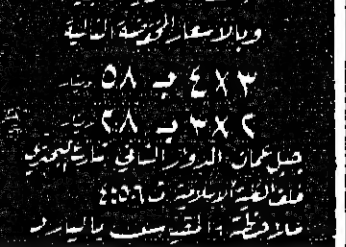 وبالاسعار المخفضة التالية
٣×٤ بـ ٥٨ دينار
٢×٣ بـ ٢٨ دينار
جبل عمان الدوار الثاني شارع البحتري
خلف الكلية الاسلامية ت ٤٤٥٠٦
ملاحظة :